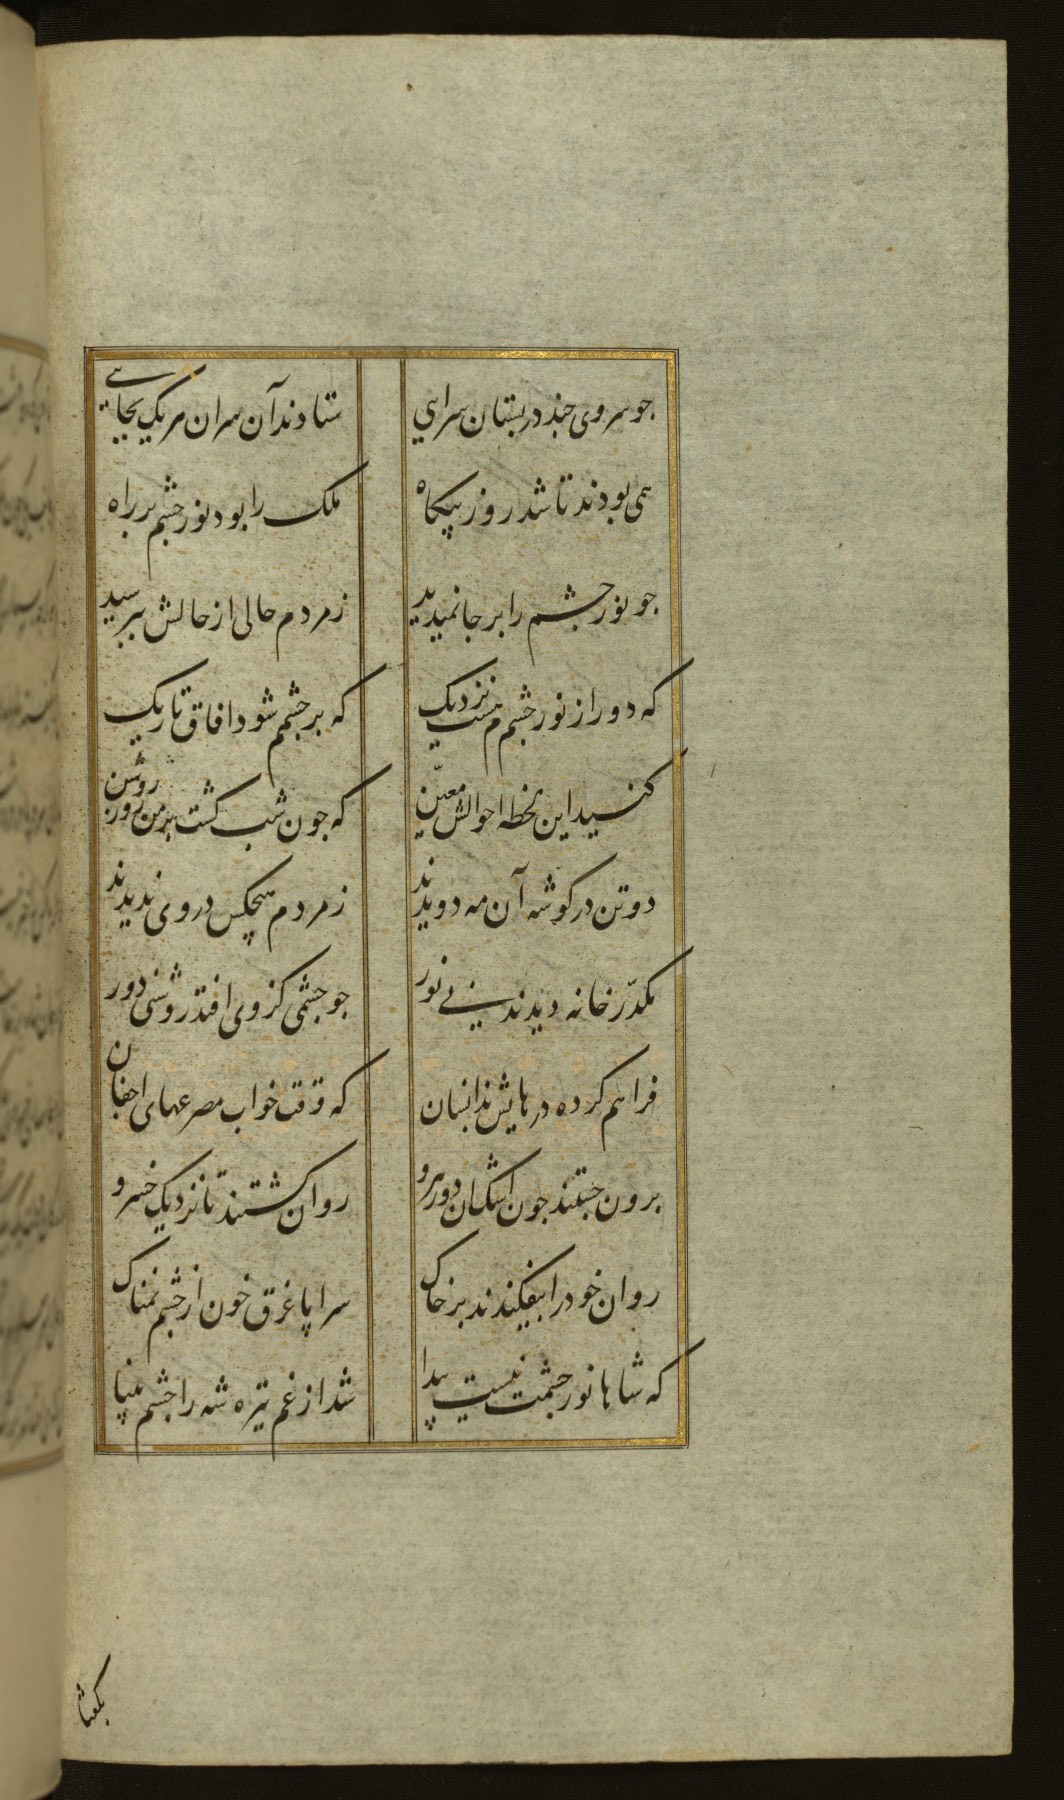 جو سروی جند در بستان سرایی ستادند آن سران هر یک بجایی
همی بودند تا شد روز بیکاه ملک را بود نور جشم بر راه
جو نور جشم را بر جا نمیدید ز مردم حالی از حالش بپرسید
که دور از نور جشمم نیست نزدیک که بر جشمم شود افاق تاریک
کنید این لحظه احوالش معیّن که جون شب کشت بر من روز روشن
دوتن در کوشه آن مه دویدند ز مردم هیچکس در وی ندیدند
مکدّر خانه دیدند بی نور جو جشمی کز وی افتد روشنی دور
فراهم کرده درهایش بدانسان که وقت خواب مصرعهای اجفان
برون جستند جون اشک آن دو رهرو روان کشتند تا نزدیک خسرو
روان خود را بیفکندند بر خاک سراپا غرق خون از جشم نمناک
که شاها نور جشمت نیست پیدا شد از غم تیره شه را جشم بینا
بگفتا